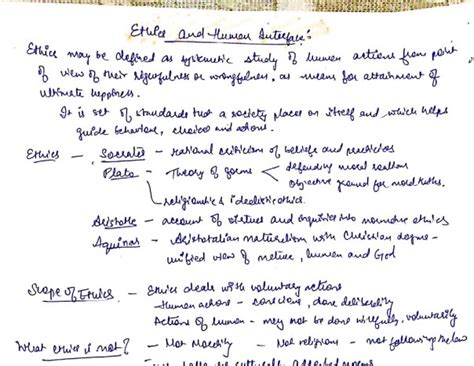 Ethics and Human Interface:
Ethics may be defined as systematic study of human actions from point
of view of their rightfulness or wrongfulness, as means for attainment of
ultimate happiness.
It is set of standards that a society places on itself and which helps
guide behaviour, choices and actions.
Ethics - Socrates - rational criticism of beliefs and practices
Plato - Theory of forms defending moral realism
objective ground for moral truths.
religionistic & idealistic ethics.
Aristotle - account of virtues and inquiries into normative ethics
Aquinas - Aristotalian naturalism with Christian dogma -
unified view of nature, human and God
Scope of Ethics - Ethics deals with voluntary actions
- Human actions - conscious, done deliberately
Actions of human - may not be done wilfully, voluntarily
What ethics is not? - Not Morality - Not religions - not following law
culturally accepted norms